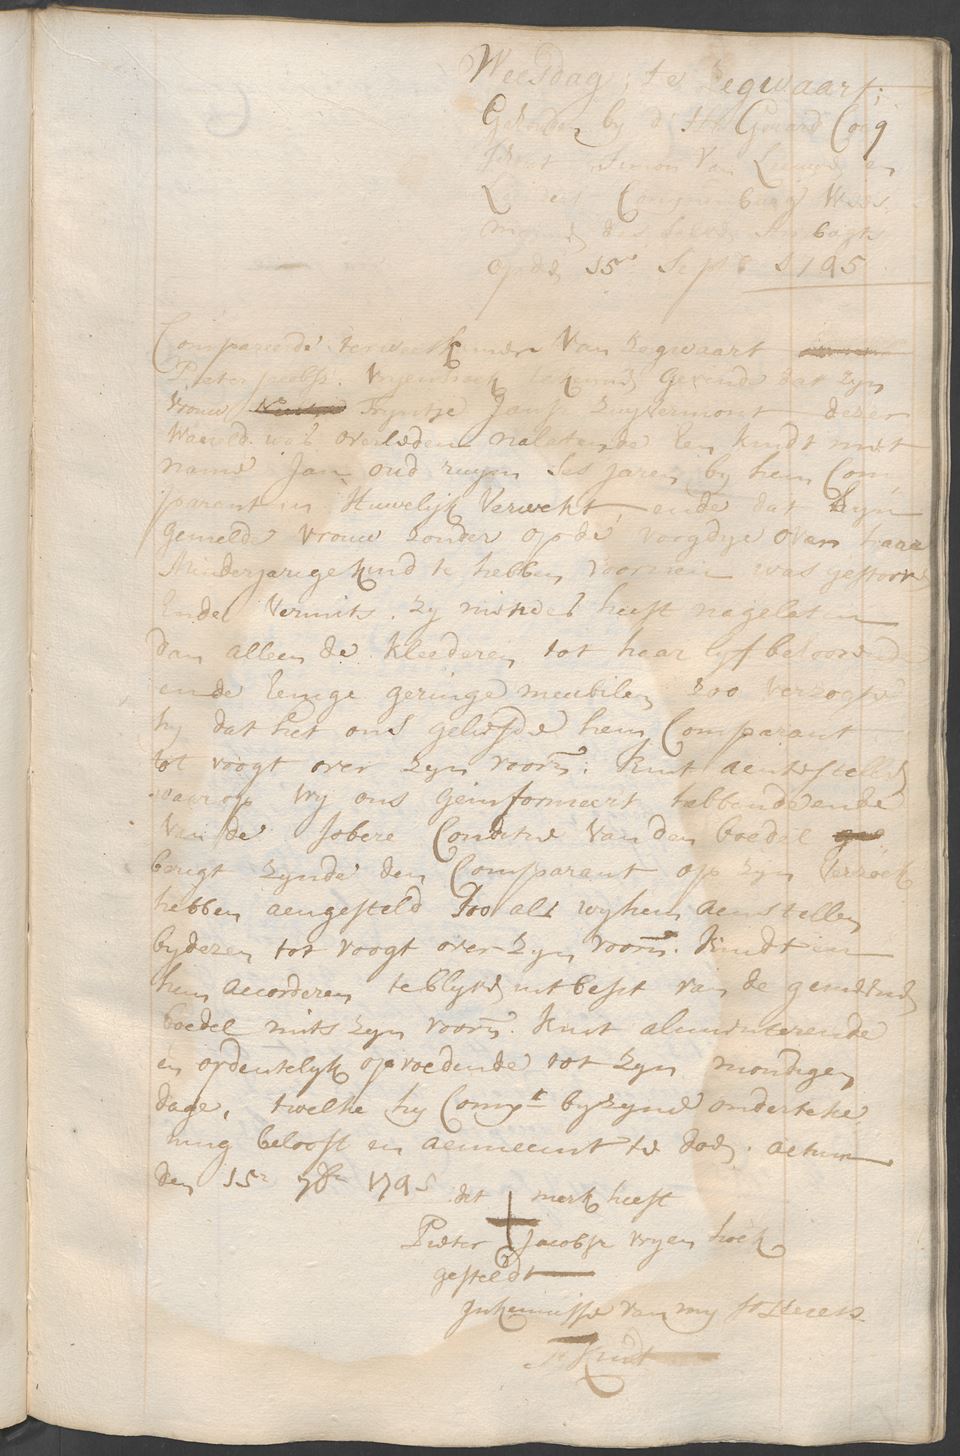 Weesdag, te Zegwaart;
Gehouden by d' Hr. Gerard Cocq
Schout Simon Van Leeuwe en
Leendert Weesmannen des selve Ambagts
op den 15e. Sept 1795
Compareerde ter weeskamer Van Zegwaart
Pieter Jacobsz. Vryenhoek te kennen gevende dat zyn
vrouw Tryntje Jansz Zuydermont dezer
Waereld was overleden nalatende Een kindt met
name Jan oud ruym Ses jaren by hem Com
parant in Huwelijk Verwekt, ende dat Zyn
gemelde vrouw zonder op de voogdye over haar
Minderjarige kind te hebben voorzien was gestorve
Ende Vermits Zy minder heeft nagelaten
dan alleen de kleederen tot haar lyf behoorende
ende Eenige geringe meubilen zoo verzogte
hy dat het ons geliefde hem Comparant
tot voogt over zyn voorn: kint aentestellen
waer op wy ons geinformeert hebbende ende
Van de sobere Conditie van den boedel
berigt zynde den Comparant op zyn Verzoek
hebben aengesteld Zoo als wy hem aenstellen
by dezen tot voogt over Zyn voorn. Kindt en
hem accorderen te blyve in 't besit van de gemeene
boedel mits zyn voorn. kint alimenterende
en ordentelyk opvoedende tot Zyn mondigen
dage, twelke hy Compt by zyne onderteke
ning belooft en aenneemt te doen. actum
den 15e 7br 1795
dit merk heeft
Pieter Jacobsz vryen hoek
gesteldt
In kennisse van my Secrets.